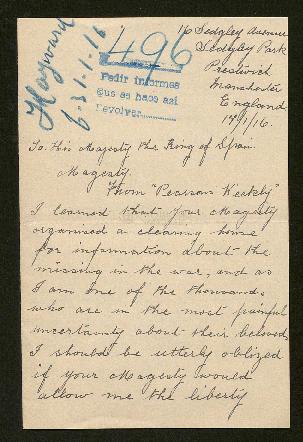 Hayward
6-31-1-16
496
Pedir informes
que se hace asi
Devolver
16 Sedgley Avenue
Sedgley Park
Prestwich
Manchester
England
19/1/16.
To His Majesty the King of Spain.
Majesty.
From "Pearson Weekly"
I learned that Your Majesty
organised a clearing house
for information about the
missing in the war, and as
I am one of the thousands
who are in the most painful
uncertainty about their beloved,
I should be utterly obliged
if your Majesty would
allow me the liberty